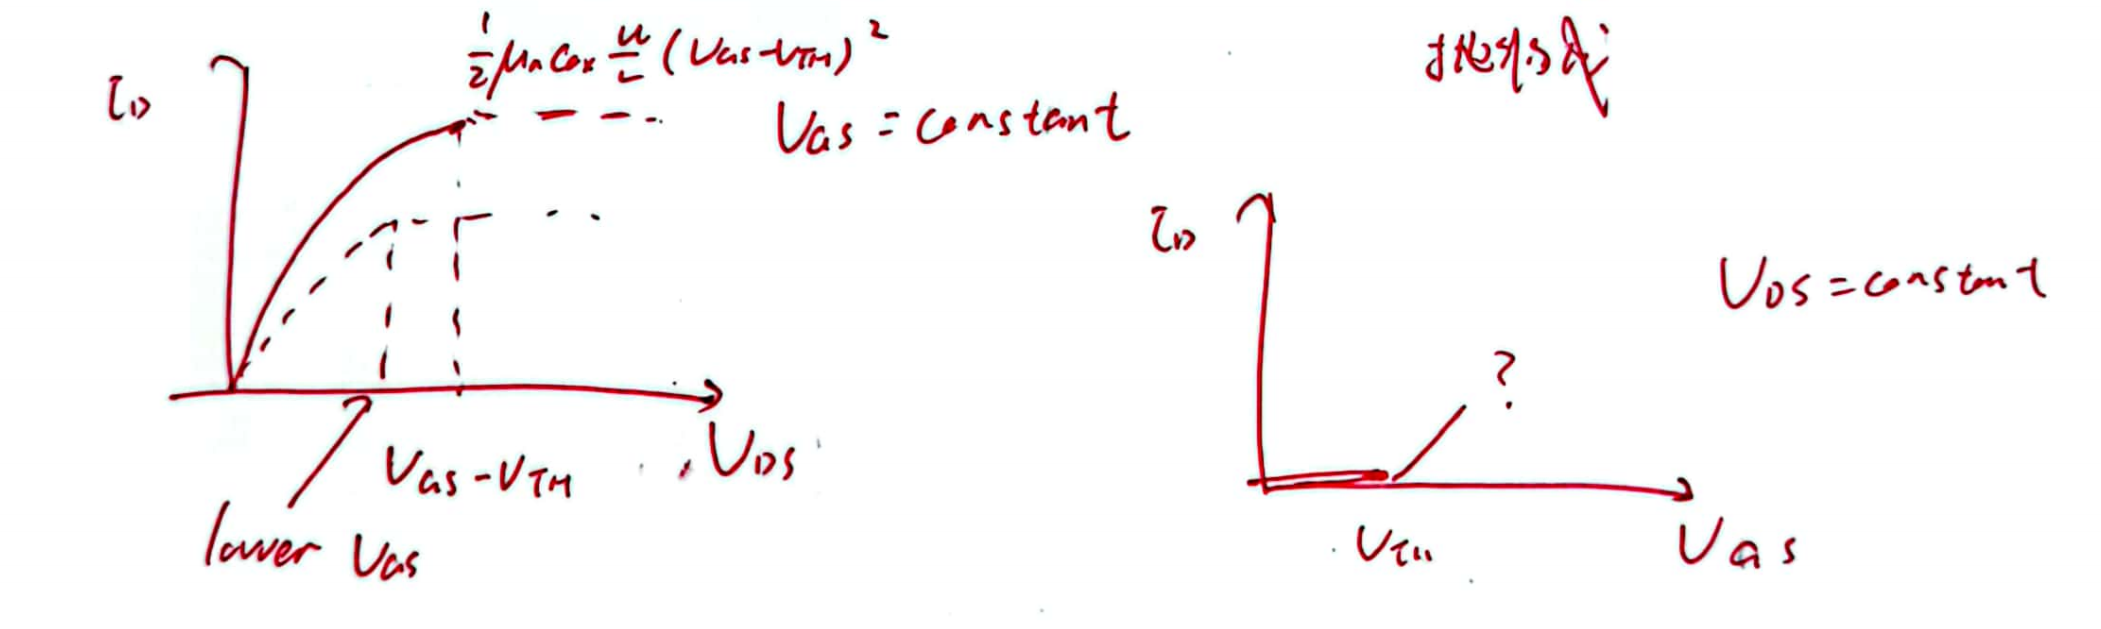 I_D
1/2 μ_n C_ox W/L (V_GS-V_TH)^2
V_GS = constant
V_GS-V_TH
V_DS
lower V_GS
I_D
V_DS = constant
?
V_TH
V_GS